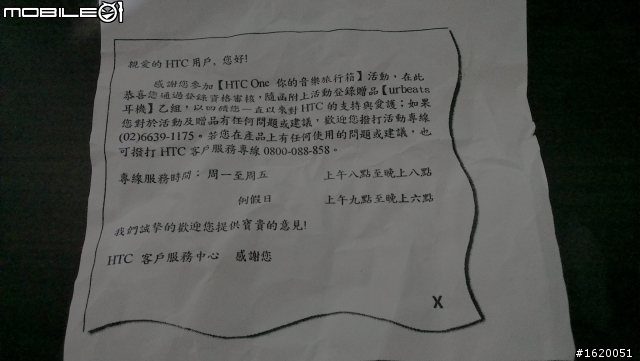 MOBILE01
親愛的 HTC 用戶、您好!
感謝您參加【HTC One 你的音樂旅行箱】活動，在此
恭喜您通過登錄資格審核，隨函附上活動登錄贈品【urbeats
耳機】乙組，以回饋您一直以來對 HTC 的支持與愛護；如果
您對於活動及贈品有任何問題或建議，歡迎您撥打活動專線
(02)6639-1175。若您在產品上有任何使用的問題或建議，也
可撥打 HTC 客戶服務專線 0800-088-858。
專線服務時間：周一至周五 上午八點至晚上八點
例假日 上午九點至晚上六點
我們誠摯的歡迎您提供寶貴的意見!
HTC 客戶服務中心 感謝您
X
#1620051